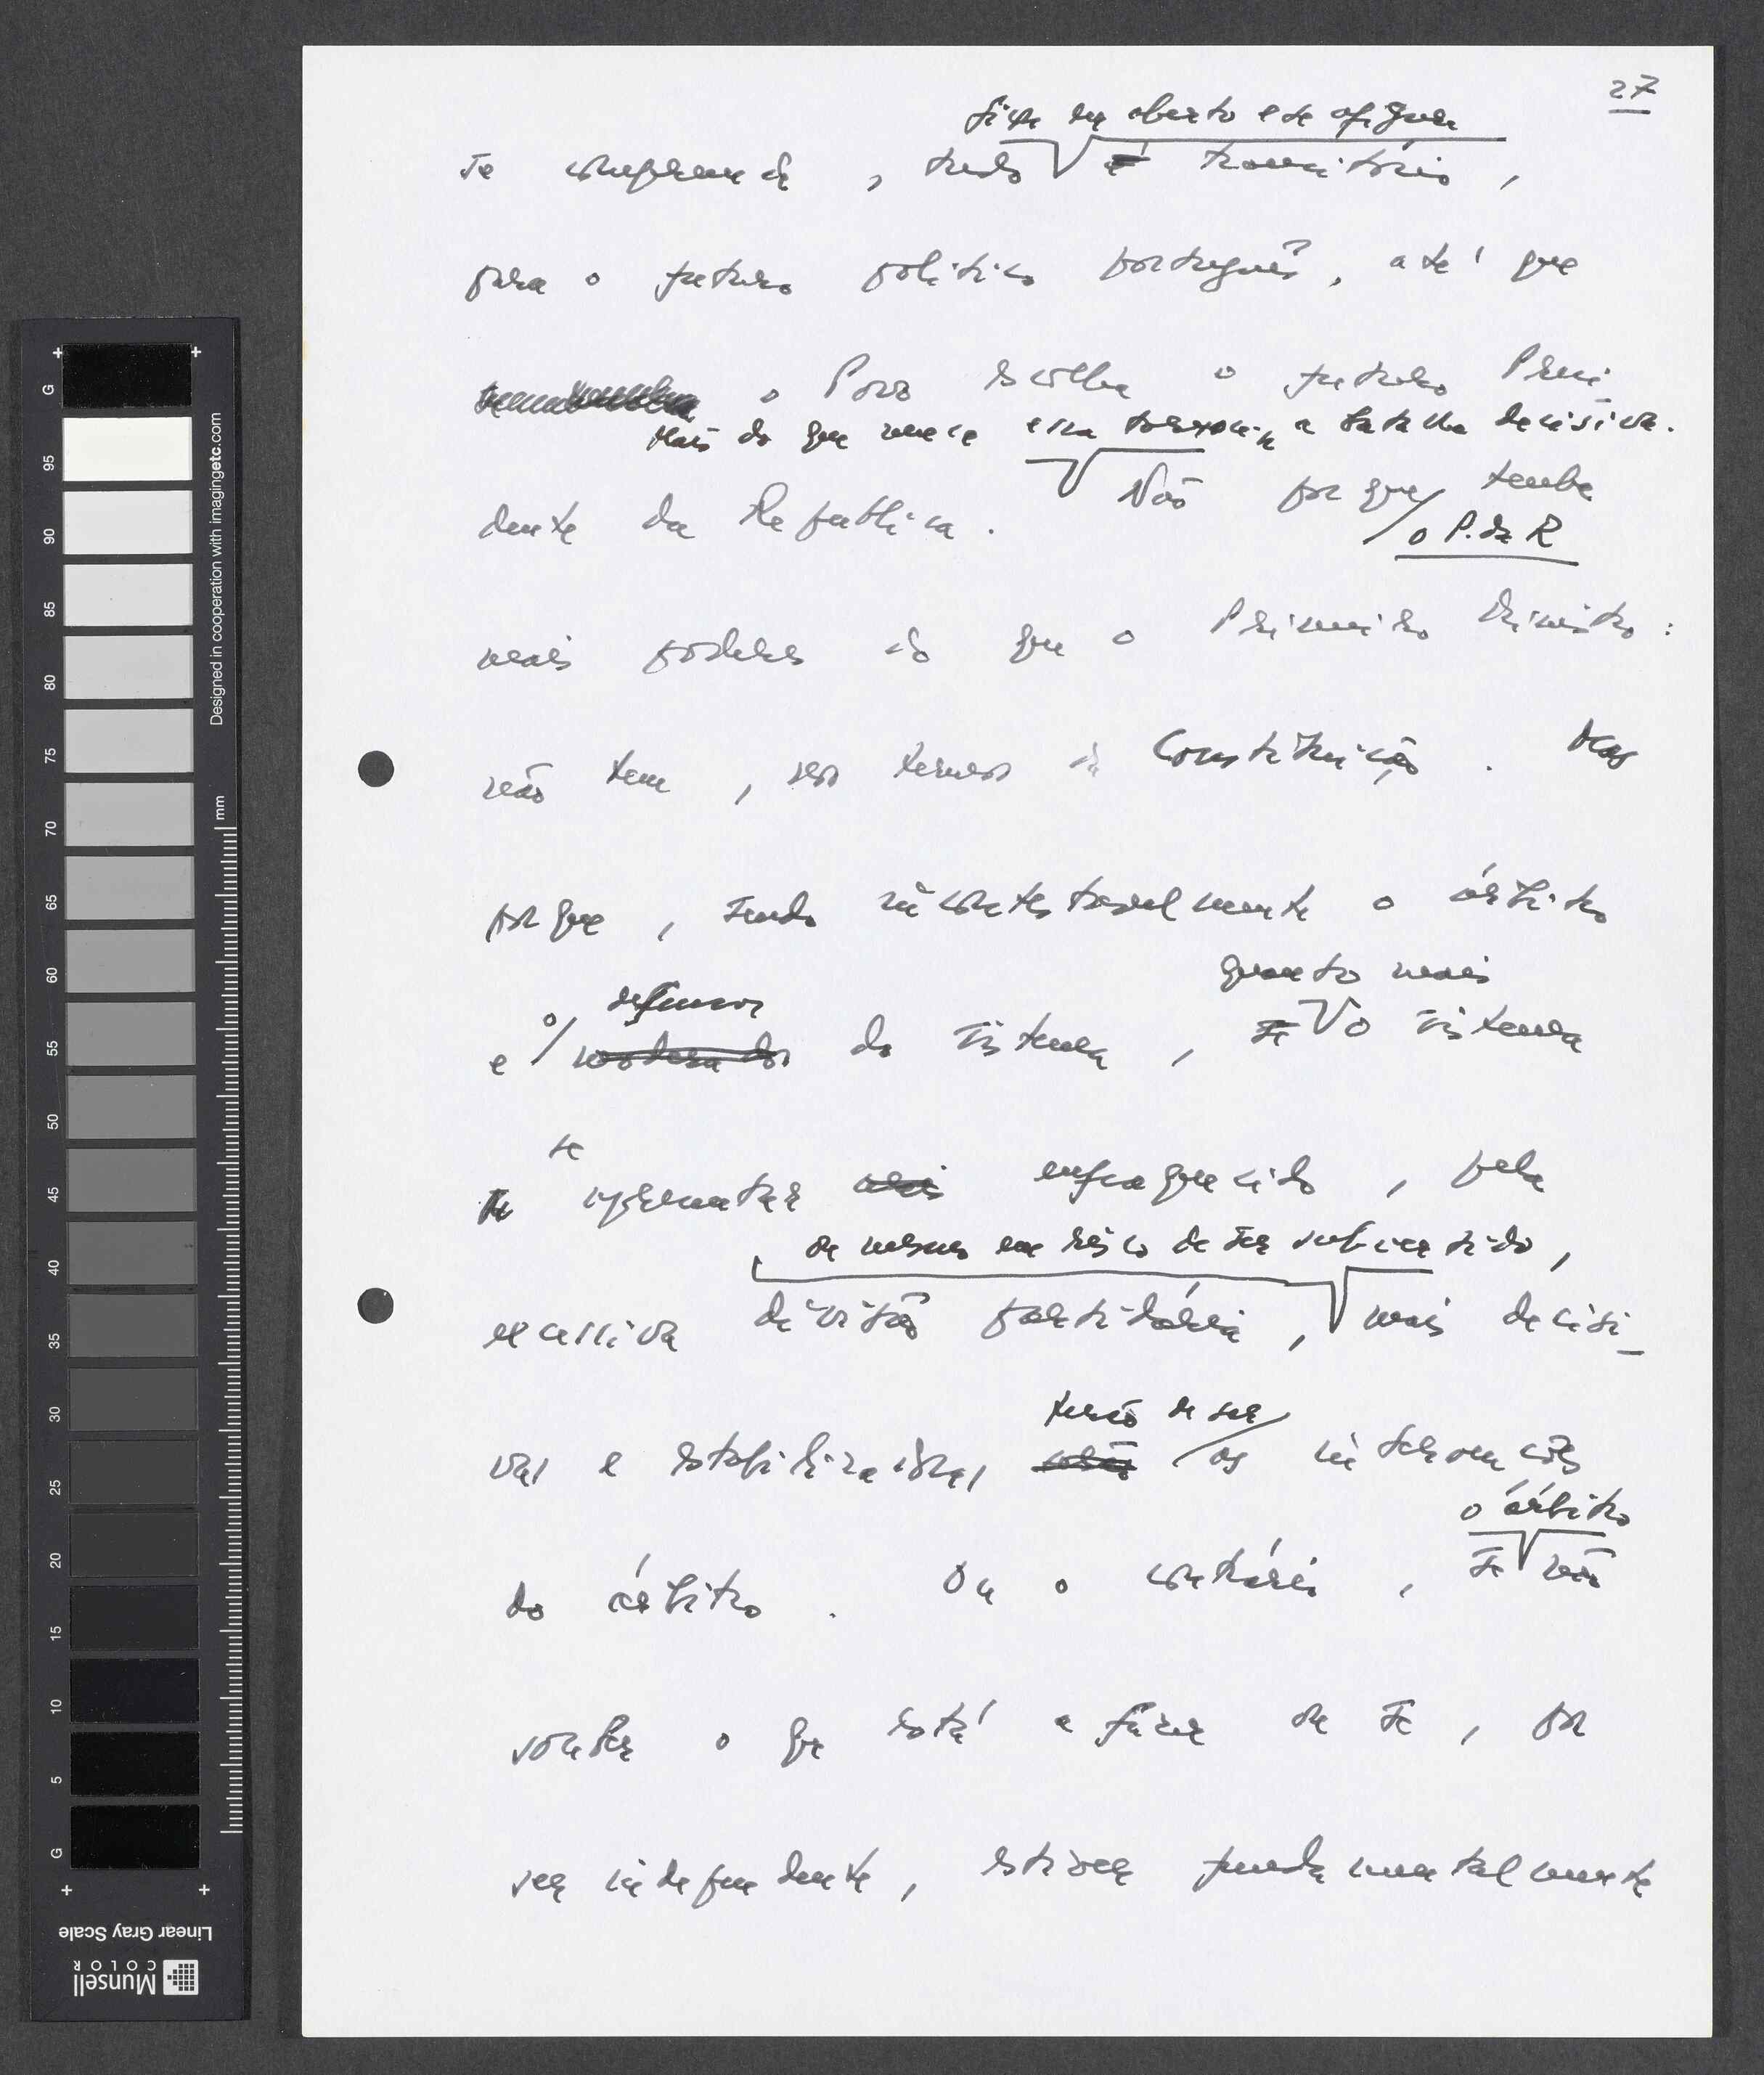 27
fica em aberto e se afigura
se compreende, tudo é transitório,
para o futuro político português, até que
o Povo escolha o futuro Presi
Mais do que nunca essa será a batalha decisiva.
dente da República. Não porque tenha
o P. da R
mais poderes do que o Primeiro Ministro:
não tem, nos termos da Constituição. Mas
porque, sendo incontestavelmente o árbitro
quanto mais
o defensor
e moderador do sistema, se o sistema
se
se apresentar mais enfraquecido, pela
ou mesmo em risco de ser subvertido,
excessiva divisão partidária, mais decisi-
terão de ser
vas e estabilizadoras serão as intervenções
o árbitro
do árbitro. Ou o contrário, se não
souber o que está a fazer ou se, por
ser independente, estiver fundamentalmente
Designed in cooperation with imagingetc.com
mm
G
95
90
85
80
75
70
65
60
55
50
45
40
35
30
25
20
15
10
5
G
Linear Gray Scale
Munsell
COLOR